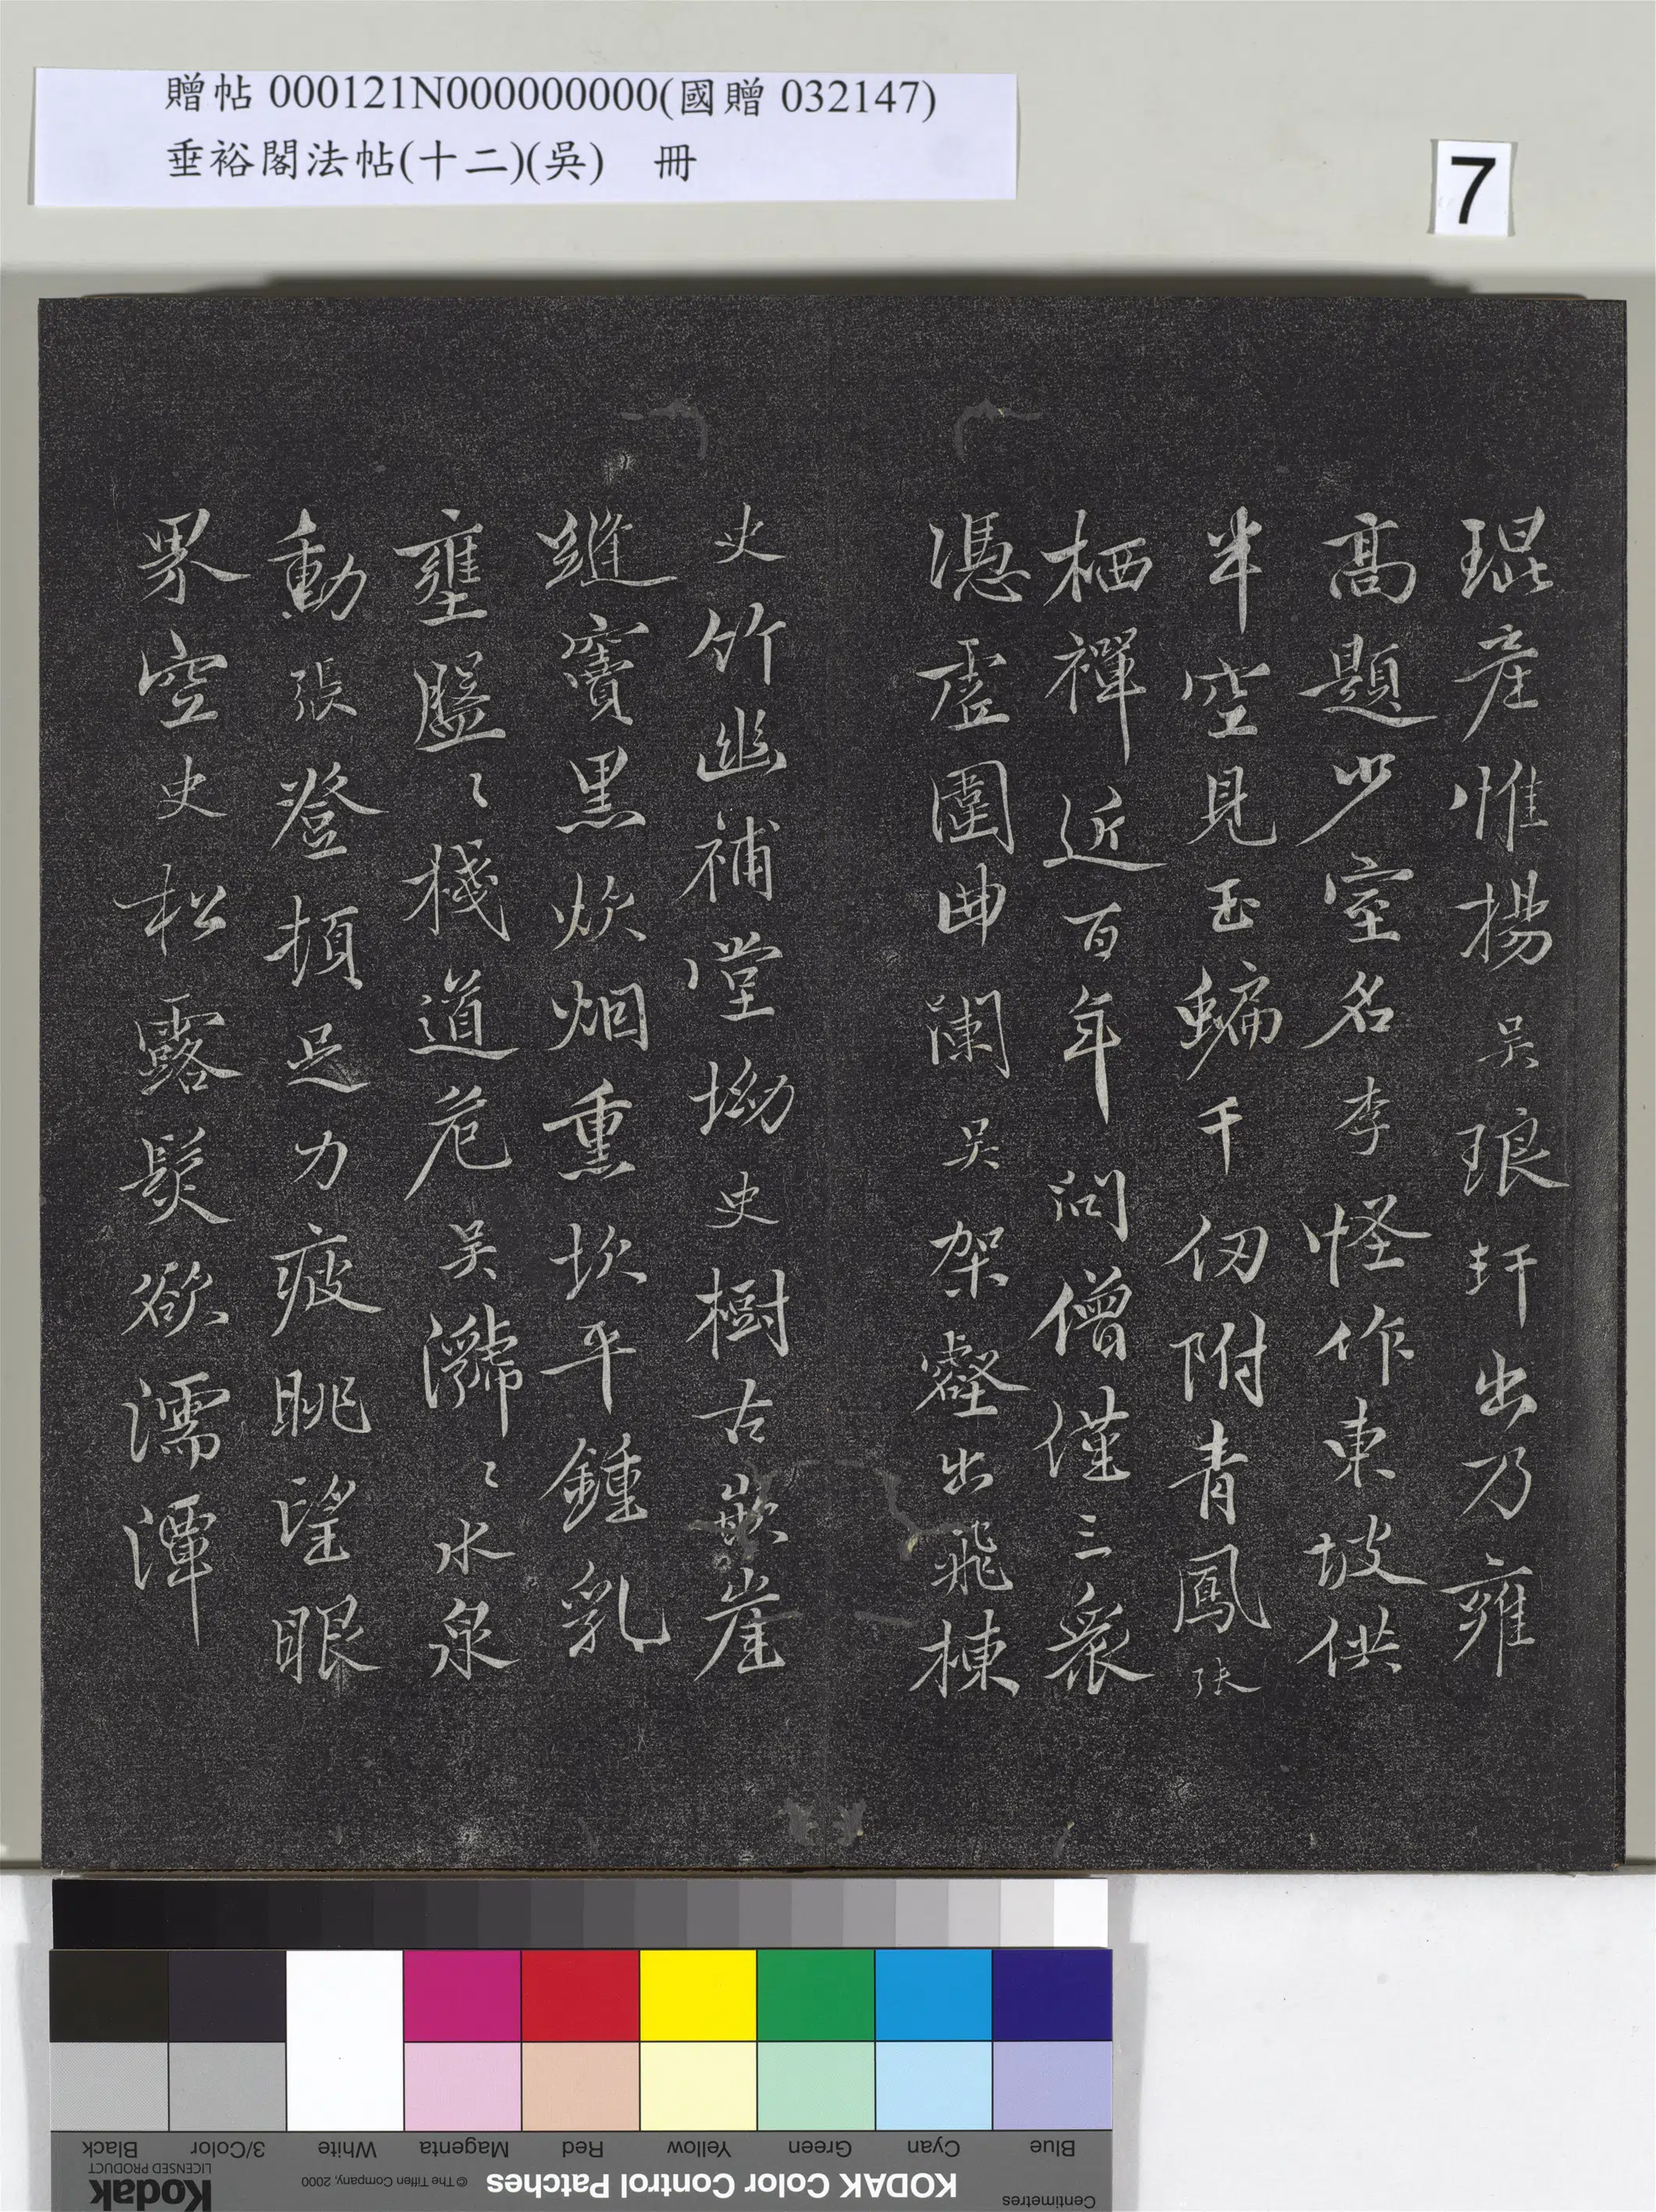 贈帖 000121N000000000(國贈 032147)
垂裕閣法帖(十二)(吳)　冊
7
琨產惟揚吳琅玕出乃雍
高題少室名李怪作東坡供
半空見玉蝙千仞附青鳳張
栖禪近百年問僧僅三衆
憑虛圍曲闌吳架壑出飛棟
史竹幽補堂坳史樹古嵌崖
縫竇黑炊烟熏坎平鍾乳
壅盤〻棧道危吳㶁〻水泉
動張登頓足力疲眺望眼
界空史松露髮欲濡潭
Blue Cyan Green Yellow Red Magenta White 3/Color Black
Centimetres KODAK Color Control Patches © The Tiffen Company, 2000 Kodak LICENSED PRODUCT